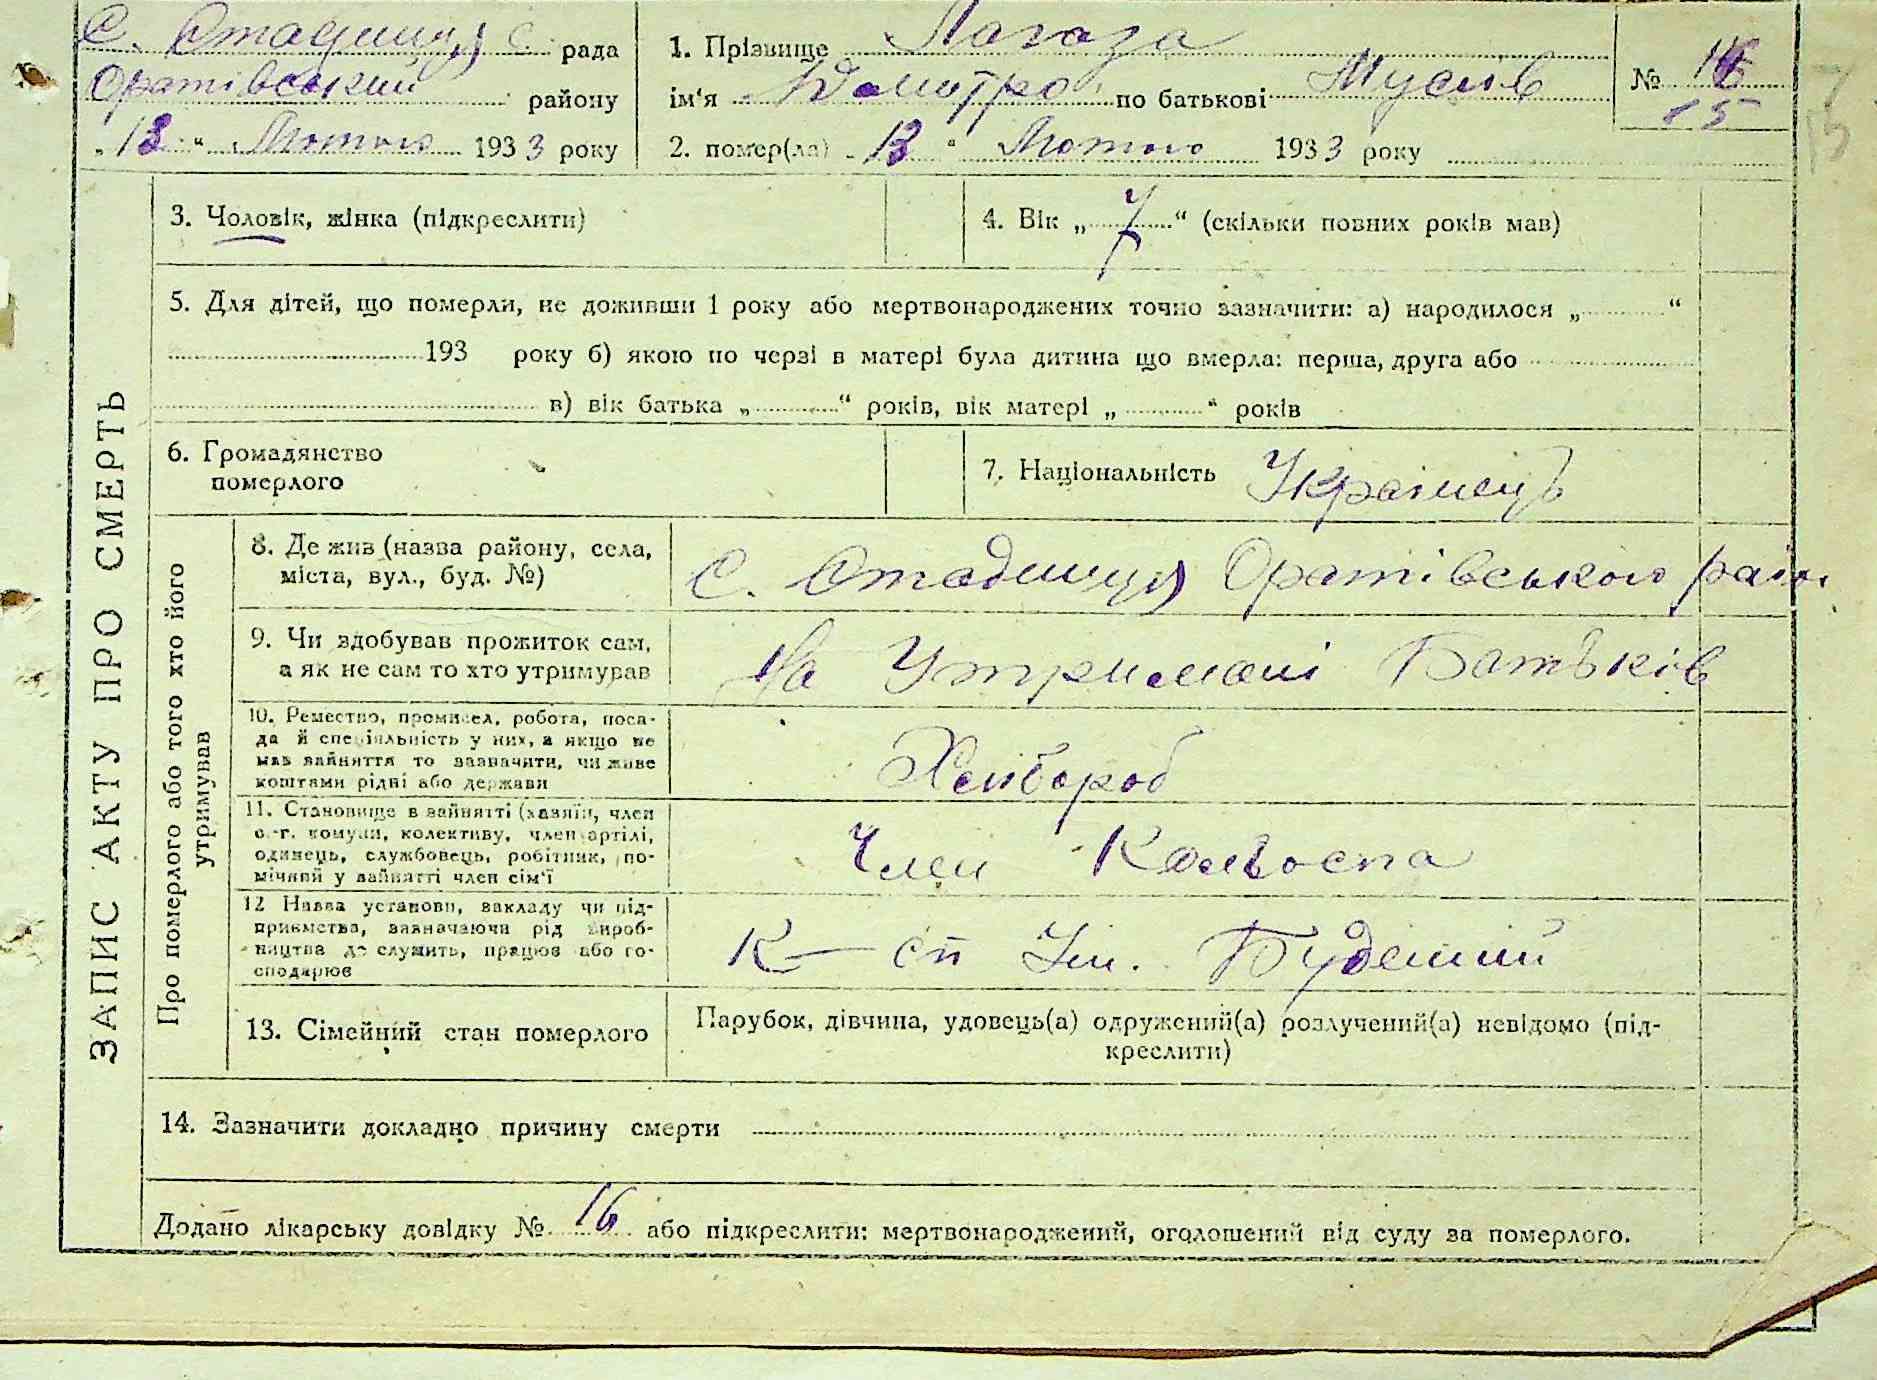 С. Стадниця с. рада
Оратівський району
„ 13 “ Лютого 1933 року
1. Прізвище Лагоза
ім‘я Домитро по батькові Мусіів
2. помер(ла) „ 13 “ Лютого 1933 року
№ 15
15
ЗАПИС АКТУ ПРО СМЕРТЬ
3. Чоловік, жінка (підкреслити)
4. Вік „ 7 “ (скільки повних років мав)
5. Для дітей, що померли, не доживши 1 року або мертвонароджених точно зазначити: а) народилося „ “
193 року б) якою по черзі в матері була дитина що вмерла: перша, друга або
в) вік батька „ “ років, вік матері „ “ років
6. Громадянство
померлого
7. Національність Українець
Про померлого або того хто його
утримував
8. Де жив (назва району, села,
міста, вул., буд. №)
С. Стадниця Оратівського район
9. Чи здобував прожиток сам,
а як не сам то хто утримував
На Утримані Батьків
10. Ремество, промисел, робота, поса-
да й спеціяльність у них, а якщо не
мав зайняття то зазначити, чи живе
коштами рідні або держави
Хлібороб
11. Становище в зайнятті (хазяїн, член
с.-г. комуни, колективу, член артілі,
одинець, службовець, робітник, по-
мічний у зайнятті член сім‘ї
Член Колгоспа
12 Назва установи, закладу чи під-
приємства, зазначаючи рід вироб-
ництва де служить, працює або го-
сподарює
К—сп Ім. Будений
13. Сімейний стан померлого
Парубок, дівчина, удовець(а) одружений(а) розлучений(а) невідомо (під-
креслити)
14. Зазначити докладно причину смерти
Додано лікарську довідку № 16 або підкреслити: мертвонароджений, оголошений від суду за померлого.